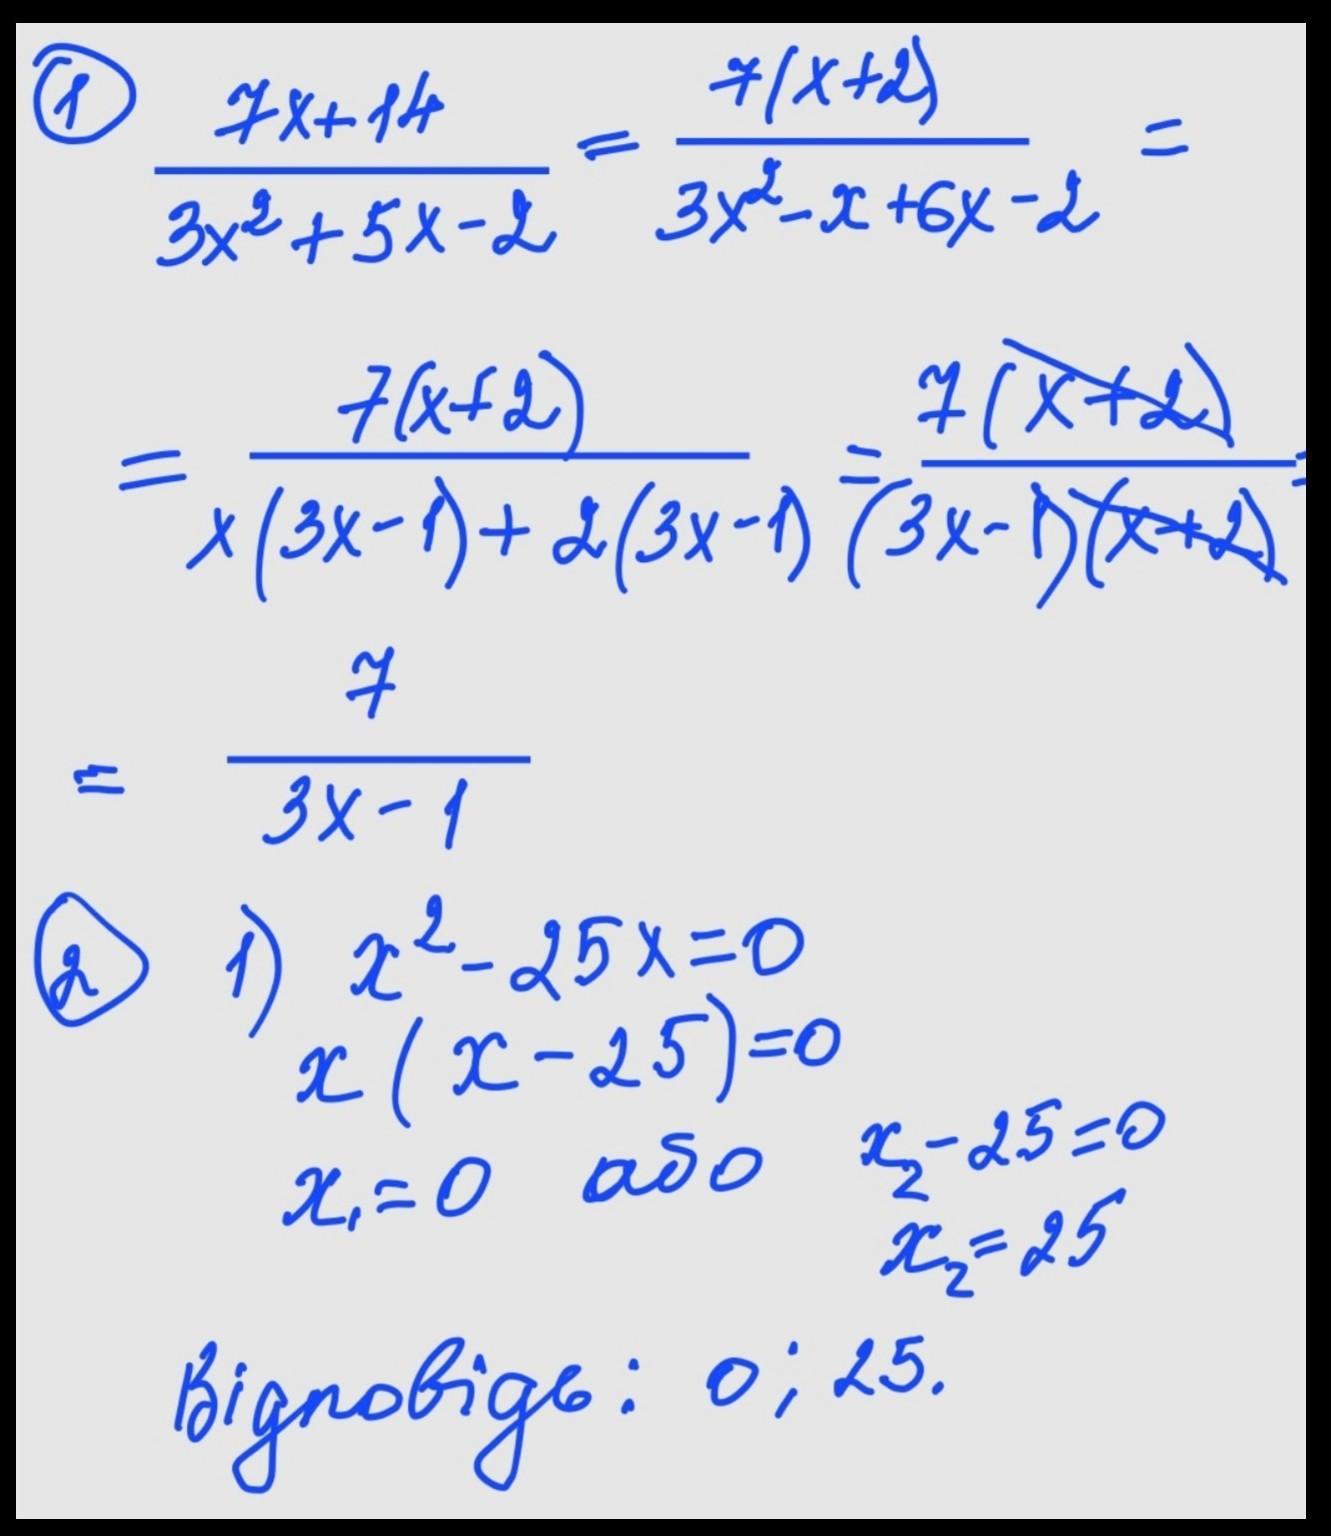 1 (7x+14)/(3x²+5x-2) = 7(x+2)/(3x²-x+6x-2) =
= 7(x+2)/(x(3x-1)+2(3x-1)) = 7(x+2)/((3x-1)(x+2)) =
= 7/(3x-1)
2 1) x²-25x=0
x(x-25)=0
x₁=0 або x₂-25=0
x₂=25
Відповідь: 0; 25.